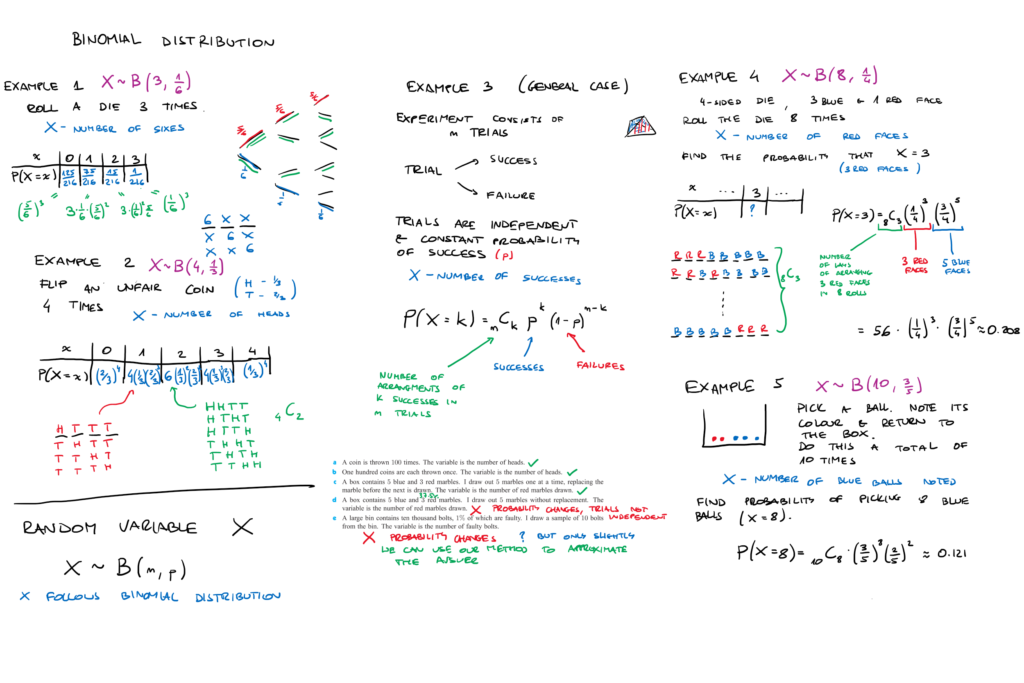 BINOMIAL DISTRIBUTION
EXAMPLE 1 X~B(3, 1/6)
ROLL A DIE 3 TIMES.
X - NUMBER OF SIXES
x 0 1 2 3
P(X=x) 125/216 75/216 15/216 1/216
(5/6)^3 3·1/6·(5/6)^2 3·(1/6)^2·5/6 (1/6)^3
5/6 5/6 5/6
1/6 1/6 1/6
6 X X
X 6 X
X X 6
EXAMPLE 2 X~B(4, 1/3)
FLIP AN UNFAIR COIN (H - 1/3
4 TIMES T - 2/3)
X - NUMBER OF HEADS
x 0 1 2 3 4
P(X=x) (2/3)^4 4(1/3)(2/3)^3 6(1/3)^2(2/3)^2 4(1/3)^3(2/3) (1/3)^4
H T T T
T H T T
T T H T
T T T H
HHTT
HTHT
HTTH
THHT
THTH
TTHH
4C2
RANDOM VARIABLE X
X ~ B(n,p)
X FOLLOWS BINOMIAL DISTRIBUTION
EXAMPLE 3 (GENERAL CASE)
EXPERIMENT CONSISTS OF
n TRIALS
TRIAL
SUCCESS
FAILURE
TRIALS ARE INDEPENDENT
& CONSTANT PROBABILITY
OF SUCCESS (p)
X - NUMBER OF SUCCESSES
P(X=k) = nCk p^k (1-p)^n-k
SUCCESSES
FAILURES
NUMBER OF
ARRANGMENTS OF
k SUCCESSES IN
n TRIALS
a A coin is thrown 100 times. The variable is the number of heads. ✓
b One hundred coins are each thrown once. The variable is the number of heads. ✓
c A box contains 5 blue and 3 red marbles. I draw out 5 marbles one at a time, replacing the
marble before the next is drawn. The variable is the number of red marbles drawn. ✓
d A box contains 5 blue and 3 red marbles. I draw out 5 marbles without replacement. The
variable is the number of red marbles drawn. X PROBABILITY CHANGES, TRIALS NOT
INDEPENDENT
e A large bin contains ten thousand bolts, 1% of which are faulty. I draw a sample of 10 bolts
from the bin. The variable is the number of faulty bolts.
X PROBABILITY CHANGES ? BUT ONLY SLIGHTLY
WE CAN USE OUR METHOD TO APPROXIMATE
THE ANSWER
EXAMPLE 4 X~B(8, 1/4)
4-SIDED DIE, 3 BLUE & 1 RED FACE
ROLL THE DIE 8 TIMES
X - NUMBER OF RED FACES
FIND THE PROBABILITY THAT X=3
(3 RED FACES)
x ... 3 ...
P(X=x) ?
P(X=3) = 8C3 (1/4)^3 (3/4)^5
R R R B B B B B
R R B R B B B B
B B B B B R R R
8C3
NUMBER
OF WAYS
OF ARRANGING
3 RED FACES
IN 8 ROLLS
3 RED
FACES
5 BLUE
FACES
= 56 · (1/4)^3 · (3/4)^5 ≈ 0.208
EXAMPLE 5 X~B(10, 3/5)
PICK A BALL. NOTE ITS
COLOUR & RETURN TO
THE BOX.
DO THIS A TOTAL OF
10 TIMES
X - NUMBER OF BLUE BALLS NOTED
FIND PROBABILITY OF PICKING 8 BLUE
BALLS (X=8).
P(X=8) = 10C8 · (3/5)^8 (2/5)^2 ≈ 0.121